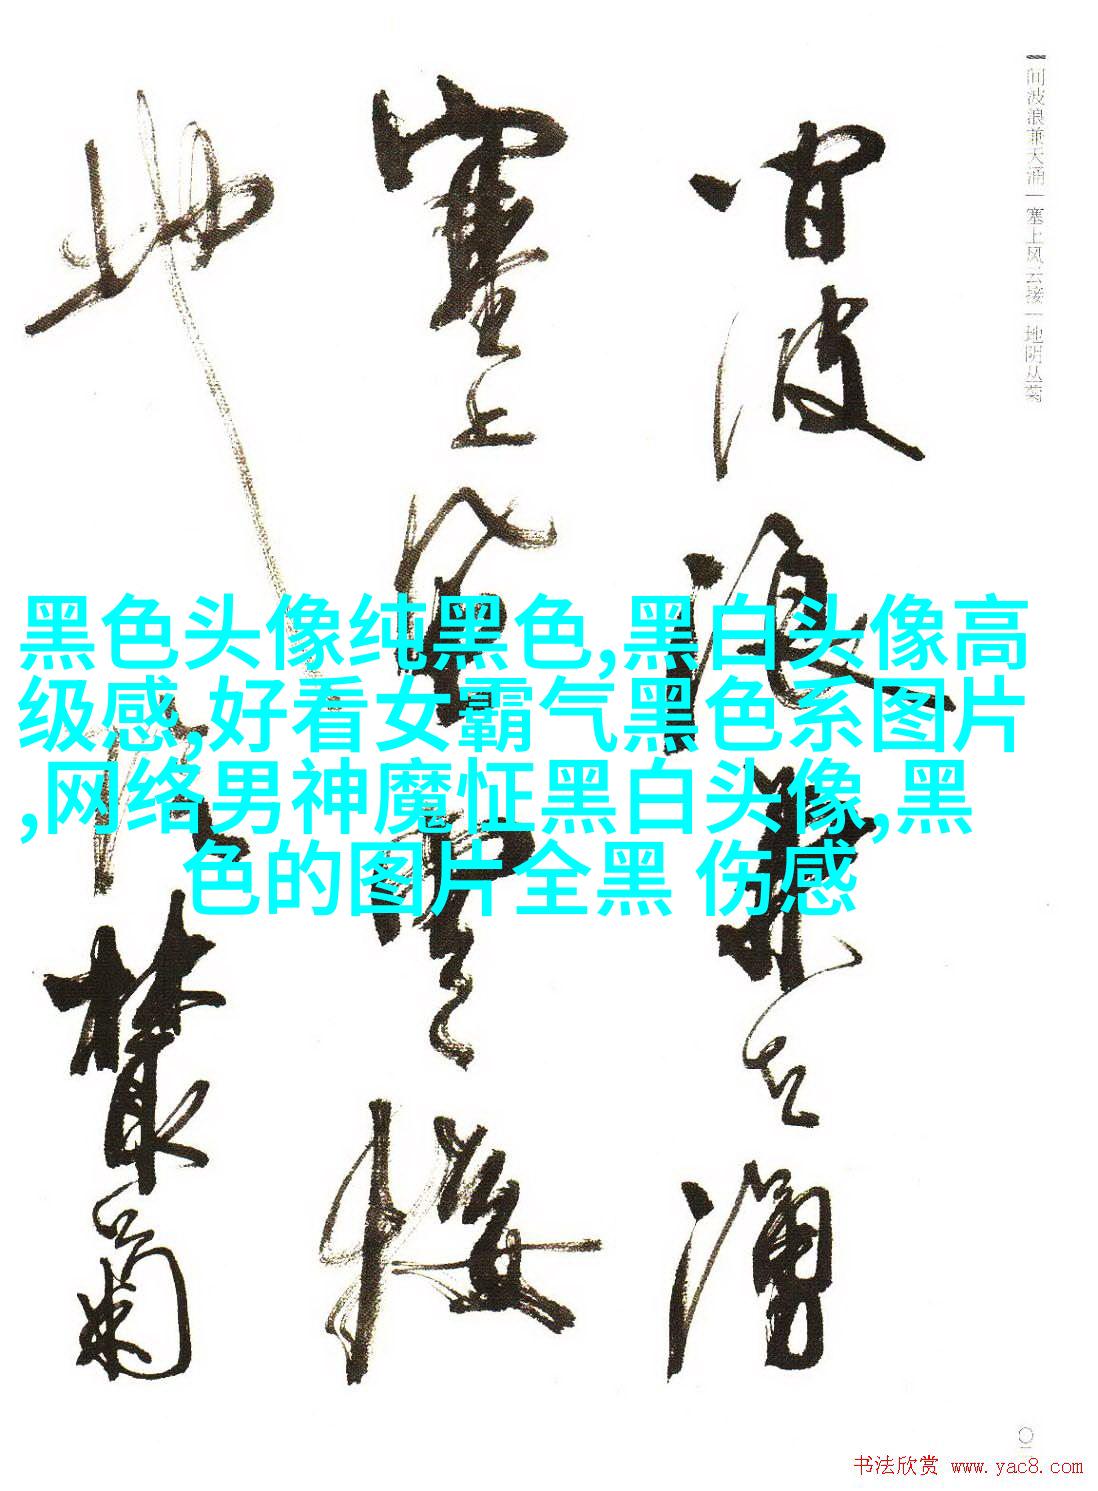 间波浪兼天涌｜塞上风云接｜地阴丛菊
间波浪兼天涌
塞上风云接
地阴丛菊
黑色头像纯黑色,黑白头像高
级感,好看女霸气黑色系图片
,网络男神魔怔黑白头像,黑
色的图片全黑 伤感
书法欣赏 www.yac8.com